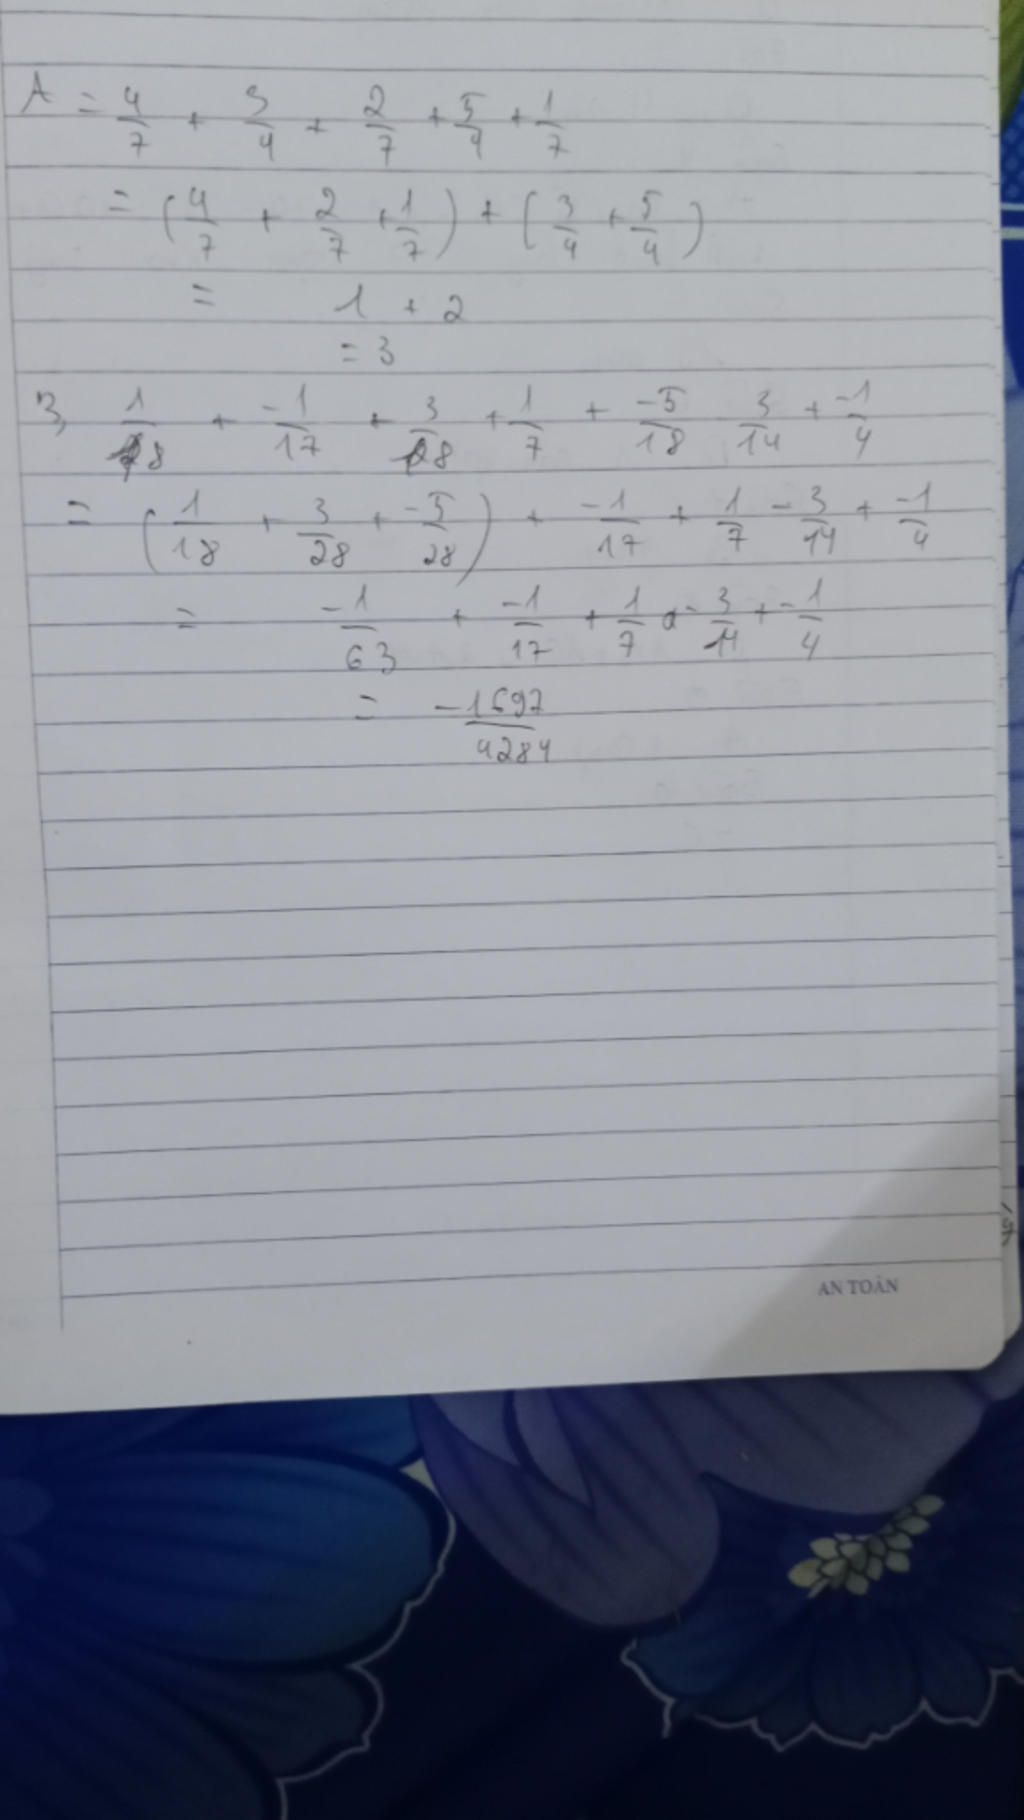 A = 4/7 + 3/4 + 2/7 + 5/4 + 1/7
= (4/7 + 2/7 + 1/7) + (3/4 + 5/4)
= 1 + 2
= 3
B, 1/18 + -1/17 + 3/28 + 1/7 + -5/18 3/14 + -1/4
= (1/18 + 3/28 + -5/28) + -1/17 + 1/7 - 3/14 + -1/4
= -1/63 + -1/17 + 1/7 - 3/14 + -1/4
= -1697/4284
AN TOÀN